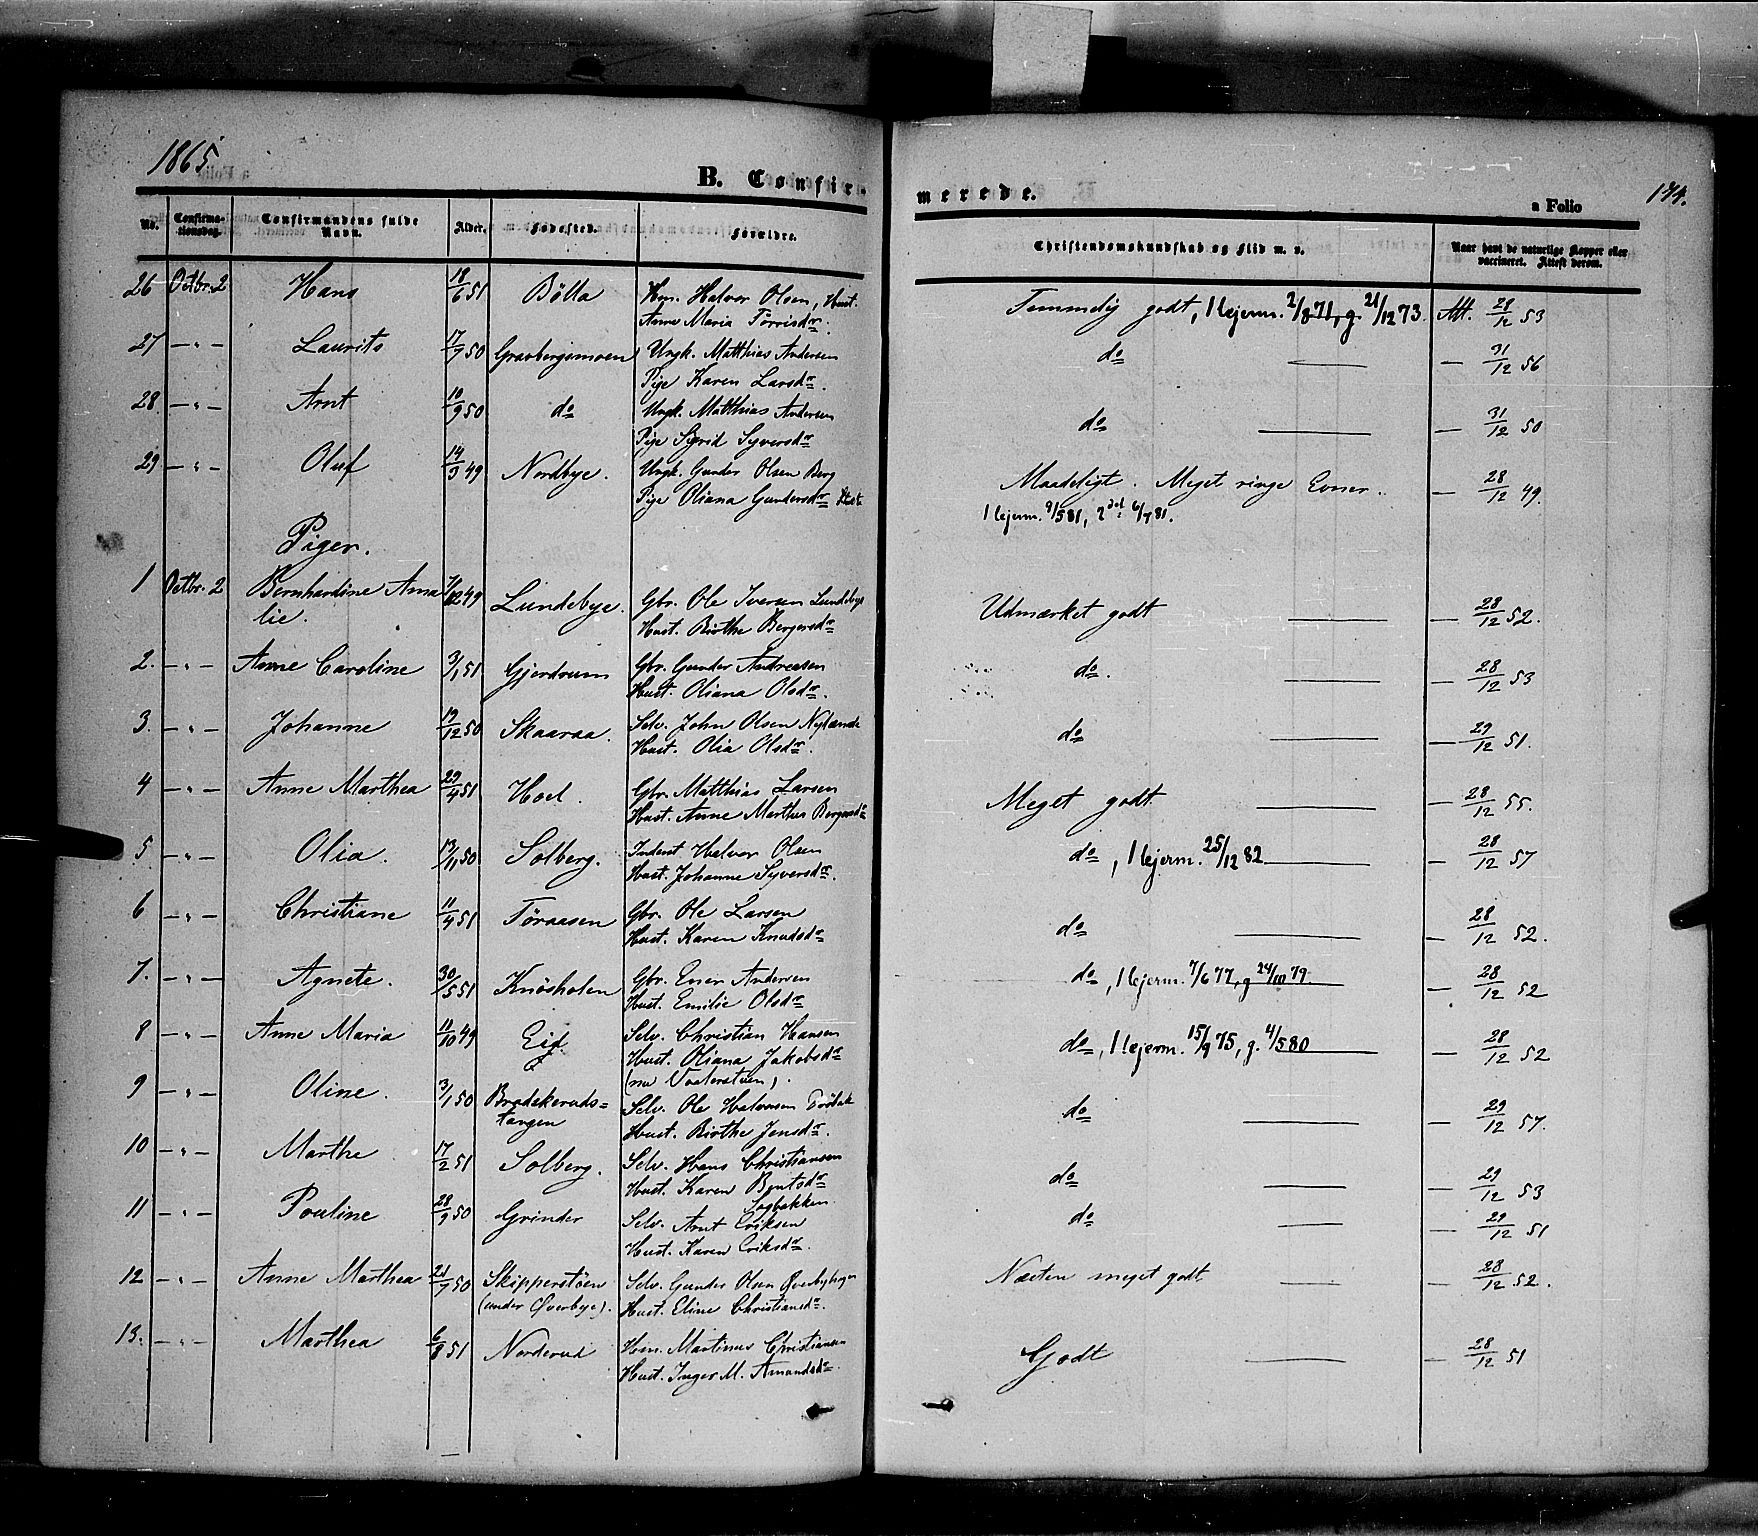 1865.
B. Confir-
merede.
a Folio
174.
No.
Confirma-
tionsdag.
Confirmandens fulde
Navn.
Alder.
Fødested.
Forældre.
Christendomskundskab og Flid m. v.
Naar havt de naturlige Kopper eller
vaccineret. Attest derom.
26 Octbr. 2 Hans 18/6 51 Bölla Hm. Halvor Olsen, Hust. Temmelig godt, 1 lejerm. 2/8 71, g. 21/12 73. Att. 28/12 53
Anne Maria Törrisdr.
27 — " — Laurits 17/9 50 Gravbergsmoen Ungk. Matthias Andersen do — 31/12 56
Pige Karen Larsdr.
28. — " — Arnt 10/9 50 do Ungk. Matthias Andersen do — 31/12 50
Pige Sigrid Syversdr
29 — " — Oluf 14/3 49 Nordbye. Ungk. Gunder Olsen Berg Maadeligt. Meget ringe Evner. — 28/12 49.
Pige Oliana Gundersdr
1 lejerm. 9/5 81, 2det 6/7 81.
Piger.
1 Octbr. 2 Bernhardine Ama- /12 49 Lundebye. Gbr. Ole Iversen Lundebye Udmærket godt — 28/12 52.
lie. Hust. Birthe Bergersdr
2. — " — Anne Caroline 3/1 51 Gjerdrum Gbr. Gunder Andreasen do. — 28/12 53
Hust. Oliana Olsdr.
3. — " — Johanne 19/12 50 Skaaraa. Selv. John Olsen do — 29/12 51.
Hust. Olia Olsdr.
4 — " — Anne Marthea 29/4 51 Hoel. Gbr. Matthias Larsen Meget godt. — 28/12 55.
Hust. Anne Marthea Bergersdr
5 — " — Olia. 13/11 50 Solberg. Inderst Halvor Olsen do, 1 lejerm. 25/12 82 — 28/12 57
Hust. Johanne Syversdr.
6 — " — Christiane 11/4 51 Töraasen Gbr. Ole Larsen do — 28/12 52.
Hust. Karen Knudsdr
7. — " — Agnete. 30/5 51 Knösholen Gbr. Ener Andersen do, 1 lejerm. 7/6 77, g 24/10 79. — 28/12 52
Hust. Emilie Olsdr
8 — " — Anne Maria 11/10 49 Eid Selv. Christian Hansen do, 1 lejerm. 15/9 75, g. 4/5 80 — 28/12 52
Hust. Oliana Jakobsdr
9 — " — Oline. 3/1 50 Brodskeruds= Selv. Ole Halvorsen do — 29/12 57.
tangen Hust. Birthe Jensdr.
10 — " — Marthe 17/2 51 Solberg. Selv. Hans Christiansen do — 29/12 53
Hust. Karen Berntsdr
11 — " — Pouline 28/9 50 Grinder Selv. Arnt Eriksen Sagbakken do — 29/12 51
Hust. Karen Eriksdr.
12 — " — Anne Marthea 21/7 50 Skipperstöen Selv. Gunder Olsen Næsten meget godt. — 28/12 52.
(under Overbye). Hust. Eline Christiansdr.
13. — " — Marthea 6/8 51 Norderud Hm. Martinus Christiansen Godt — 28/12 51
Hust. Inger M. Amundsdr